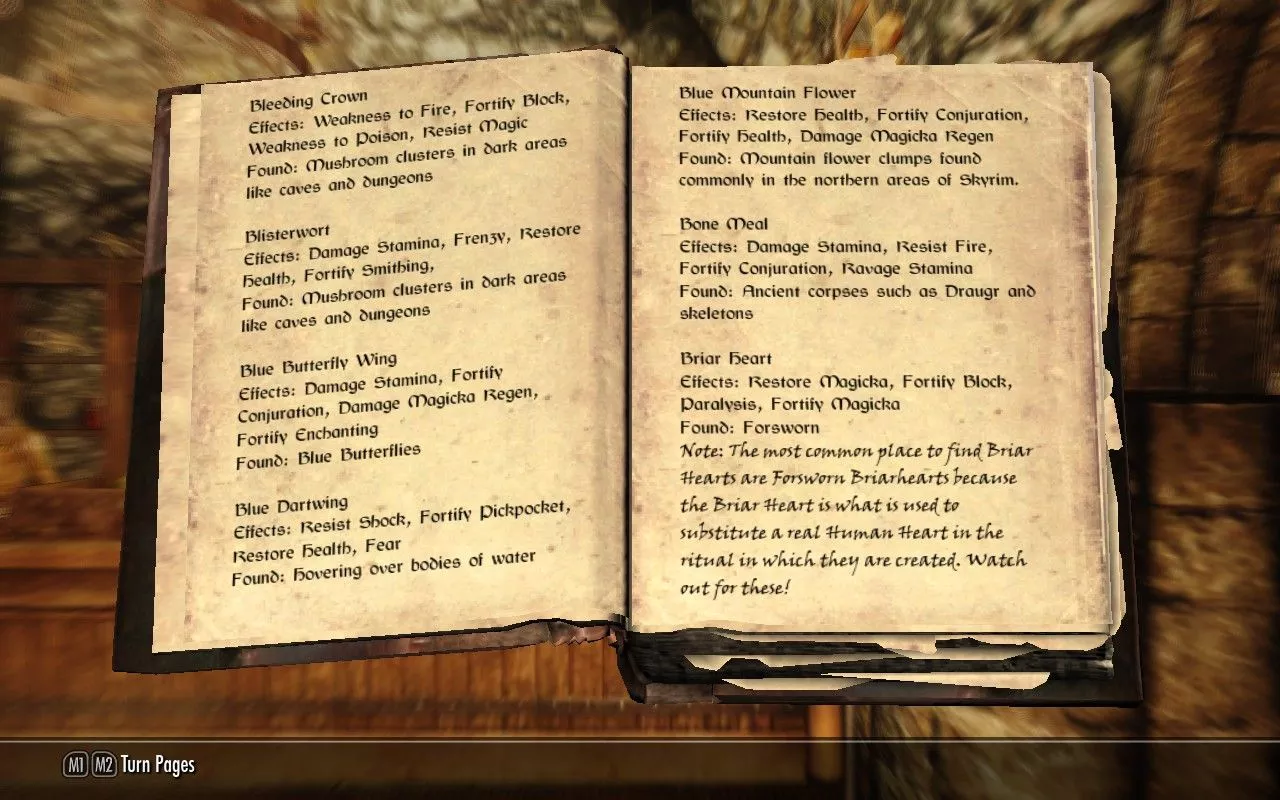 Bleeding Crown
Effects: Weakness to Fire, Fortify Block,
Weakness to Poison, Resist Magic
Found: Mushroom clusters in dark areas
like caves and dungeons
Blisterwort
Effects: Damage Stamina, Frenzy, Restore
Health, Fortify Smithing,
Found: Mushroom clusters in dark areas
like caves and dungeons
Blue Butterfly Wing
Effects: Damage Stamina, Fortify
Conjuration, Damage Magicka Regen,
Fortify Enchanting
Found: Blue Butterflies
Blue Dartwing
Effects: Resist Shock, Fortify Pickpocket,
Restore Health, Fear
Found: Hovering over bodies of water
Blue Mountain Flower
Effects: Restore Health, Fortify Conjuration,
Fortify Health, Damage Magicka Regen
Found: Mountain flower clumps found
commonly in the northern areas of Skyrim.
Bone Meal
Effects: Damage Stamina, Resist Fire,
Fortify Conjuration, Ravage Stamina
Found: Ancient corpses such as Draugr and
skeletons
Briar Heart
Effects: Restore Magicka, Fortify Block,
Paralysis, Fortify Magicka
Found: Forsworn
Note: The most common place to find Briar
Hearts are Forsworn Briarhearts because
the Briar Heart is what is used to
substitute a real Human Heart in the
ritual in which they are created. Watch
out for these!
M1 M2 Turn Pages